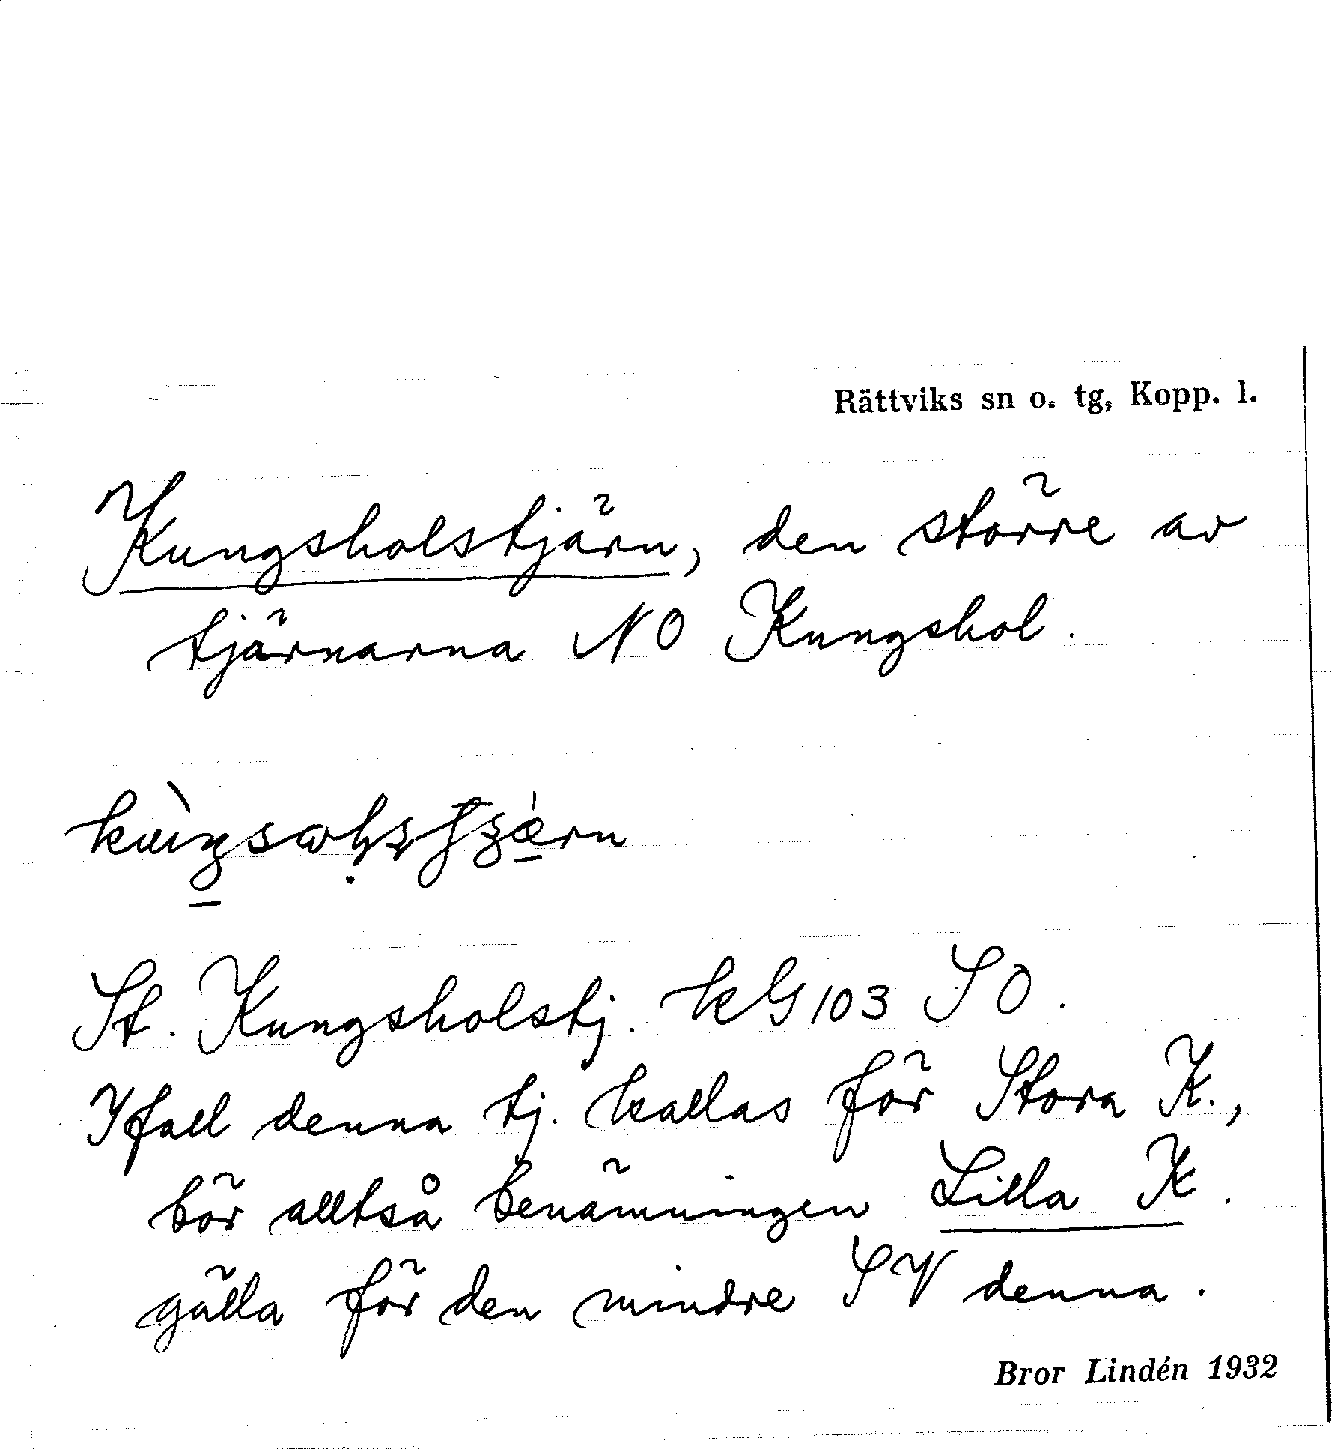 Rättviks sn o. tg, Kopp. l.
Kungsholstjärn, den större av
tjärnarna NO Kungshol.
St. Kungsholstj. kG 103 SO.
Ifall denna tj. kallas för Stora K.,
bör alltså benämningen Lilla K.
gälla för den mindre SV denna.
Bror Lindén 1932